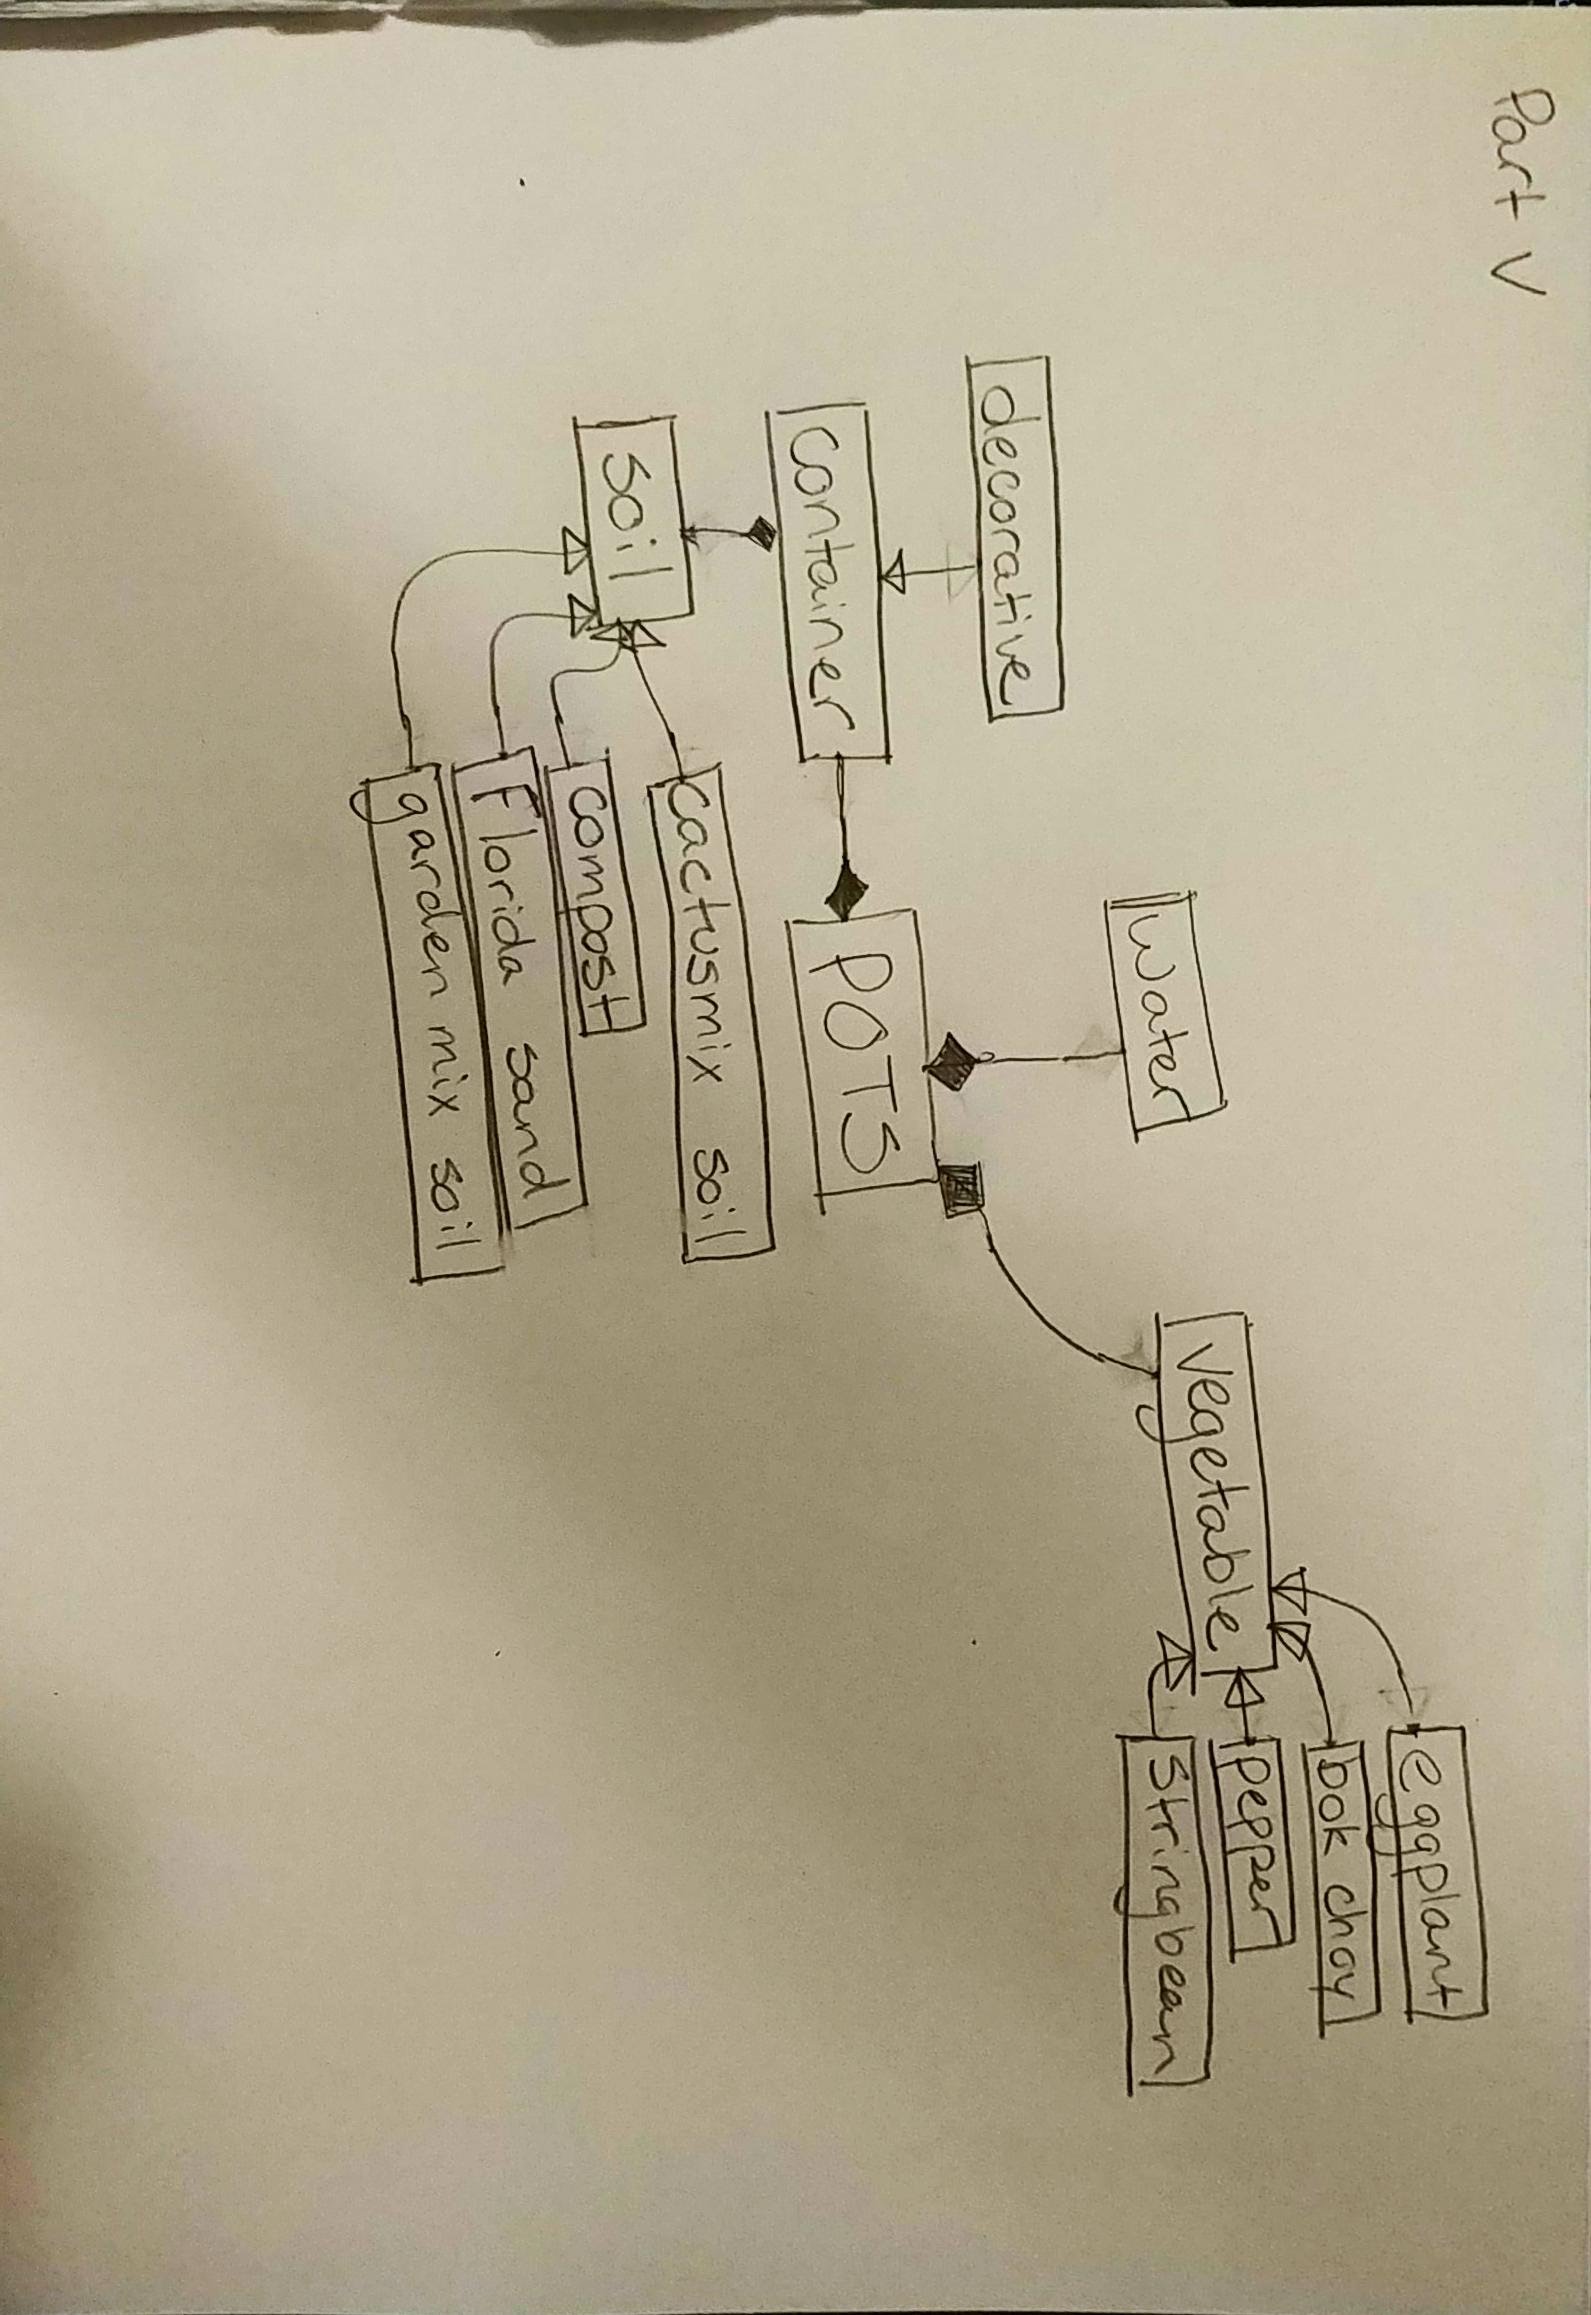 Part V
decorative
Water
container
POTS
soil
cactusmix soil
compost
Florida sand
garden mix soil
vegetable
eggplant
bok choy
pepper
stringbean